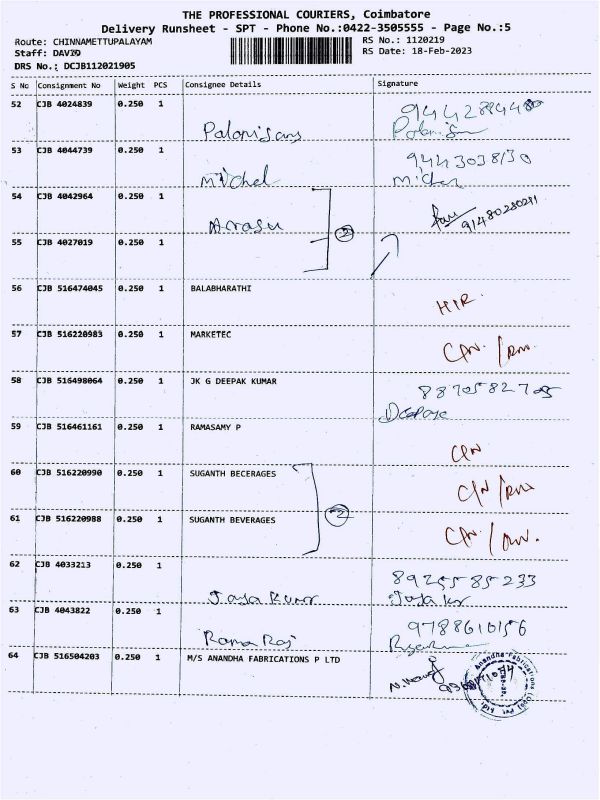 THE PROFESSIONAL COURIERS, Coimbatore
Delivery Runsheet - SPT - Phone No.:0422-3505555 - Page No.:5
Route: CHINNAMETTUPALAYAM RS No.: 1120219
Staff: DAVID RS Date: 18-Feb-2023
DRS No.: DCJB112021905
S No Consignment No Weight PCS Consignee Details Signature
52 CJB 4024839 0.250 1
Palanisamy
53 CJB 4044739 0.250 1 9443038130
Michel
54 CJB 4042964 0.250 1
Arrasu
2
55 CJB 4027019 0.250 1
56 CJB 516474045 0.250 1 BALABHARATHI
57 CJB 516220983 0.250 1 MARKETEC
58 CJB 516498064 0.250 1 JK G DEEPAK KUMAR 8870582705
59 CJB 516461161 0.250 1 RAMASAMY P
60 CJB 516220990 0.250 1 SUGANTH BECERAGES
2
61 CJB 516220988 0.250 1 SUGANTH BEVERAGES
62 CJB 4033213 0.250 1 8925585233
Jaya Kumar
63 CJB 4043822 0.250 1 9788610156
Rama Raj
64 CJB 516504203 0.250 1 M/S ANANDHA FABRICATIONS P LTD
Anandha Fabrications